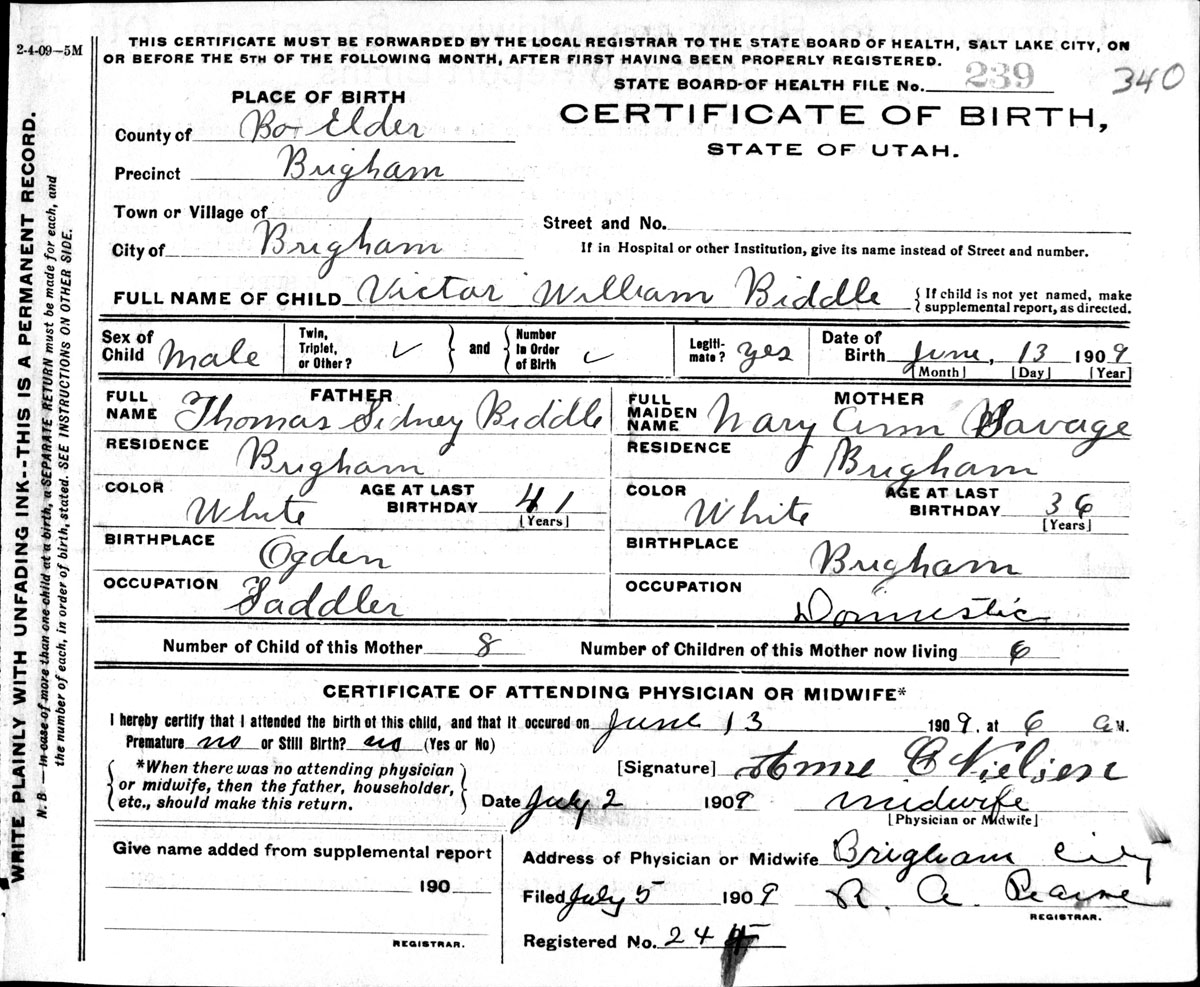 2-4-09—5M
THIS CERTIFICATE MUST BE FORWARDED BY THE LOCAL REGISTRAR TO THE STATE BOARD OF HEALTH, SALT LAKE CITY, ON
OR BEFORE THE 5TH OF THE FOLLOWING MONTH, AFTER FIRST HAVING BEEN PROPERLY REGISTERED.
STATE BOARD OF HEALTH FILE No. 239 340
PLACE OF BIRTH
CERTIFICATE OF BIRTH,
STATE OF UTAH.
County of Box Elder
Precinct Brigham
Town or Village of
Street and No.
City of Brigham
If in Hospital or other Institution, give its name instead of Street and number.
FULL NAME OF CHILD Victor William Biddle {If child is not yet named, make supplemental report, as directed.
Sex of Child Male Twin, Triplet, or Other? ✓ } and { Number In Order of Birth ✓ Legiti- mate? yes Date of Birth June, 13 1909
[Month] [Day] [Year]
FATHER
FULL NAME Thomas Sidney Biddle
RESIDENCE Brigham
COLOR White AGE AT LAST BIRTHDAY 41
[Years]
BIRTHPLACE Ogden
OCCUPATION Saddler
MOTHER
FULL MAIDEN NAME Mary Ann Savage
RESIDENCE Brigham
COLOR White AGE AT LAST BIRTHDAY 36
[Years]
BIRTHPLACE Brigham
OCCUPATION Domestic
Number of Child of this Mother 8 Number of Children of this Mother now living 6
CERTIFICATE OF ATTENDING PHYSICIAN OR MIDWIFE*
I hereby certify that I attended the birth of this child, and that it occured on June 13 1909, at 6 a M.
Premature no or Still Birth? no (Yes or No)
*When there was no attending physician
or midwife, then the father, householder,
etc., should make this return.
[Signature] Anne C Nielsen
Date July 2 1909 midwife
[Physician or Midwife]
Give name added from supplemental report
190
REGISTRAR.
Address of Physician or Midwife Brigham City
Filed July 5 1909 R. A.
REGISTRAR.
Registered No. 24
WRITE PLAINLY WITH UNFADING INK--THIS IS A PERMANENT RECORD.
N. B.—In case of more than one child at a birth, a SEPARATE RETURN must be made for each, and
the number of each, in order of birth, stated. SEE INSTRUCTIONS ON OTHER SIDE.